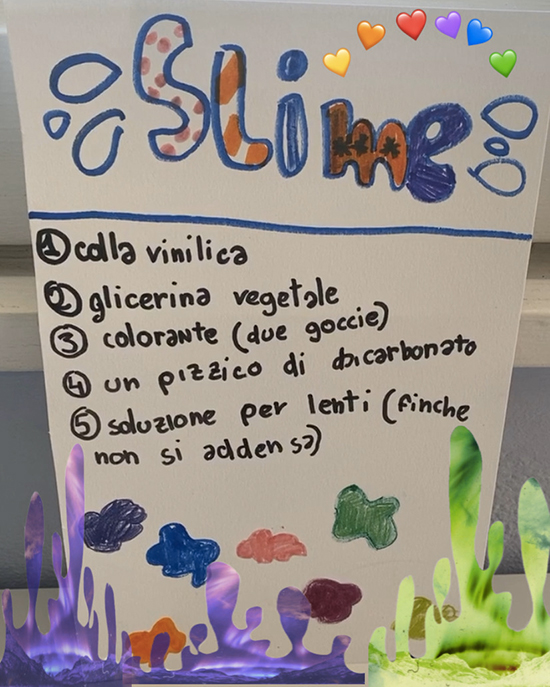 Slime
1 colla vinilica
2 glicerina vegetale
3 colorante (due goccie)
4 un pizzico di bicarbonato
5 soluzione per lenti (finche
non si addensa)